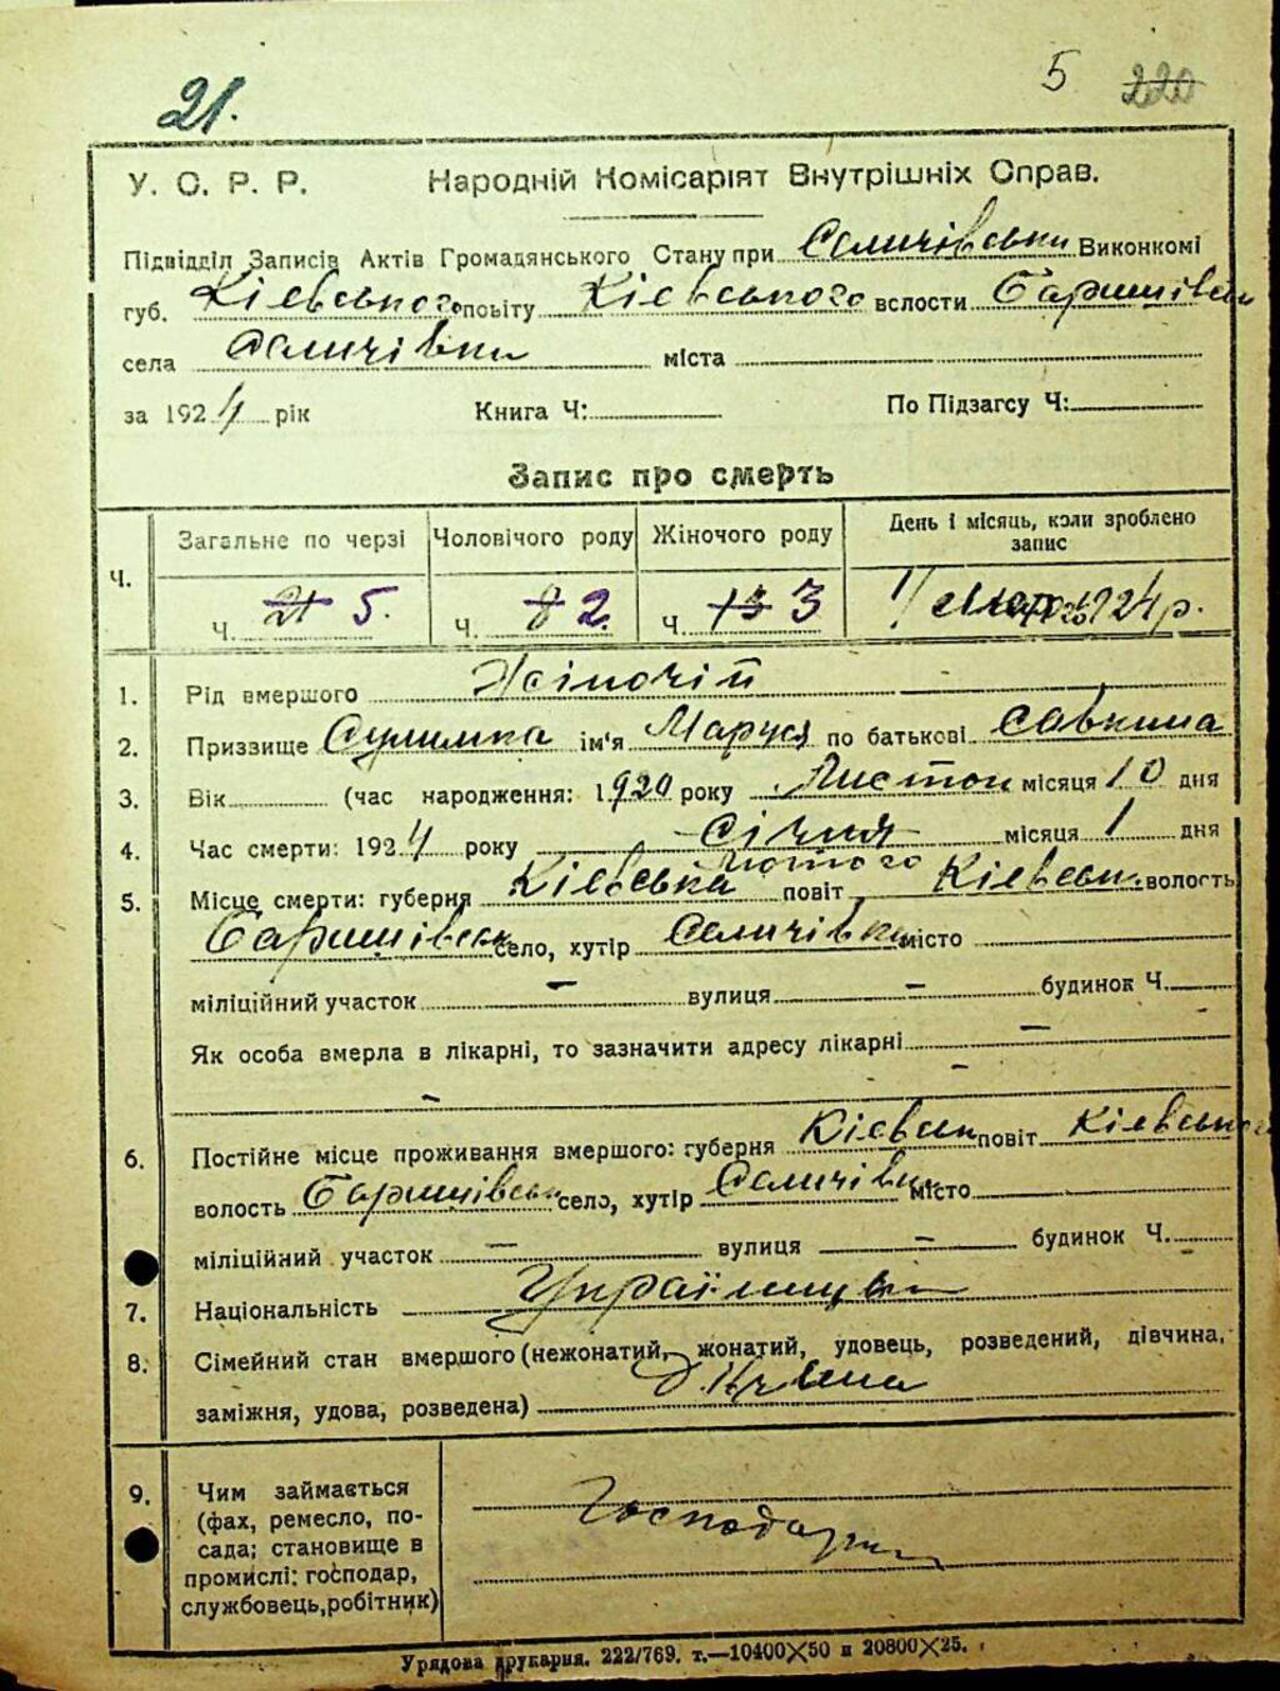 21.
5 220
У. С. Р. Р. Народній Комісаріят Внутрішніх Справ.
Підвідділ Записів Актів Громадянського Стану при Селичівськи Виконкомі
губ. Кієвського повіту Кієвського вслости Баришівськ
села Селичівки міста
за 1924 рік Книга Ч: По Підзагсу Ч:
Запис про смерть
Ч. Загальне по черзі Чоловічого роду Жіночого роду День і місяць, коли зроблено запис
Ч. 21 5. Ч. 8 2. Ч. 13 3 1/ 1924 р.
1. Рід вмершого Жіночій
2. Призвище Сулимка ім'я Маруся по батькові Савкина
3. Вік (час народження: 1920 року Листоп місяця 10 дня
4. Час смерти: 1924 року Січня місяця 1 дня
Лютого
5. Місце смерти: губерня Кіевська повіт Кієвськ. волость
Баришівськ село, хутір Селичівка місто
міліційний участок – вулиця – будинок Ч.
Як особа вмерла в лікарні, то зазначити адресу лікарні –
6. Постійне місце проживання вмершого: губерня Кієвськ повіт Кієвського
волость Баришівськ село, хутір Селичівка місто
міліційний участок – вулиця – будинок Ч.
7. Національність
8. Сімейний стан вмершого (нежонатий, жонатий, удовець, розведений, дівчина,
заміжня, удова, розведена) Дівчина
9. Чим займається
(фах, ремесло, по-
сада; становище в
промислі: господар,
службовець, робітник)
Урядова друкарня. 222/769. т.—10400×50 и 20800×25.